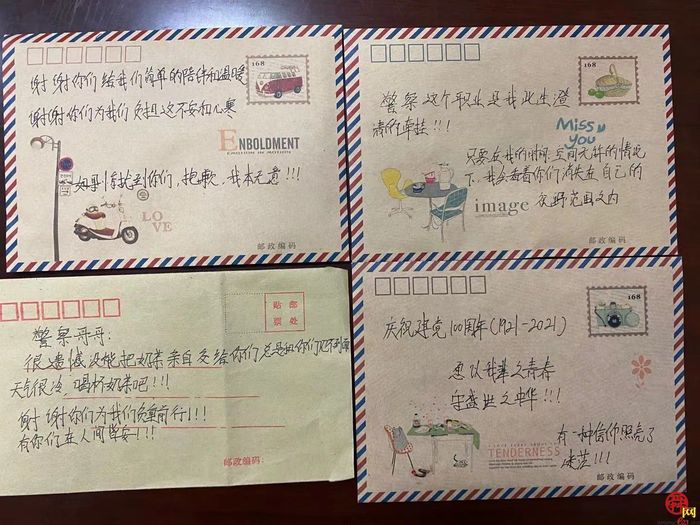 谢谢你们给我们简单的陪伴和温暖
谢谢你们为我们负担这不安和心寒
168
ENBOLDMENT
EMOTION IN MOTION
如果惊扰到你们,抱歉,我本无意!!!
LOVE
邮政编码
168
警察这个职业是我此生澄
清的牵挂!!!
Miss u
you
只要在我的时间空间允许的情况
下,我会看着你们消失在自己的
视野范围之内
image
邮政编码
贴 邮
票 处
警察哥哥:
很遗憾没能把奶茶亲自交给你们,总是和你们见不到面
天气很冷,喝杯奶茶吧!!!
谢谢你们为我们负重前行!!!
有你们在人间皆安!!!
邮政编码:
168
庆祝建党100周年(1921-2021)
愿以我辈之青春
守盛世之中华!!!
TENDERNESS
有一种信仰照亮了
迷茫!!!
邮政编码